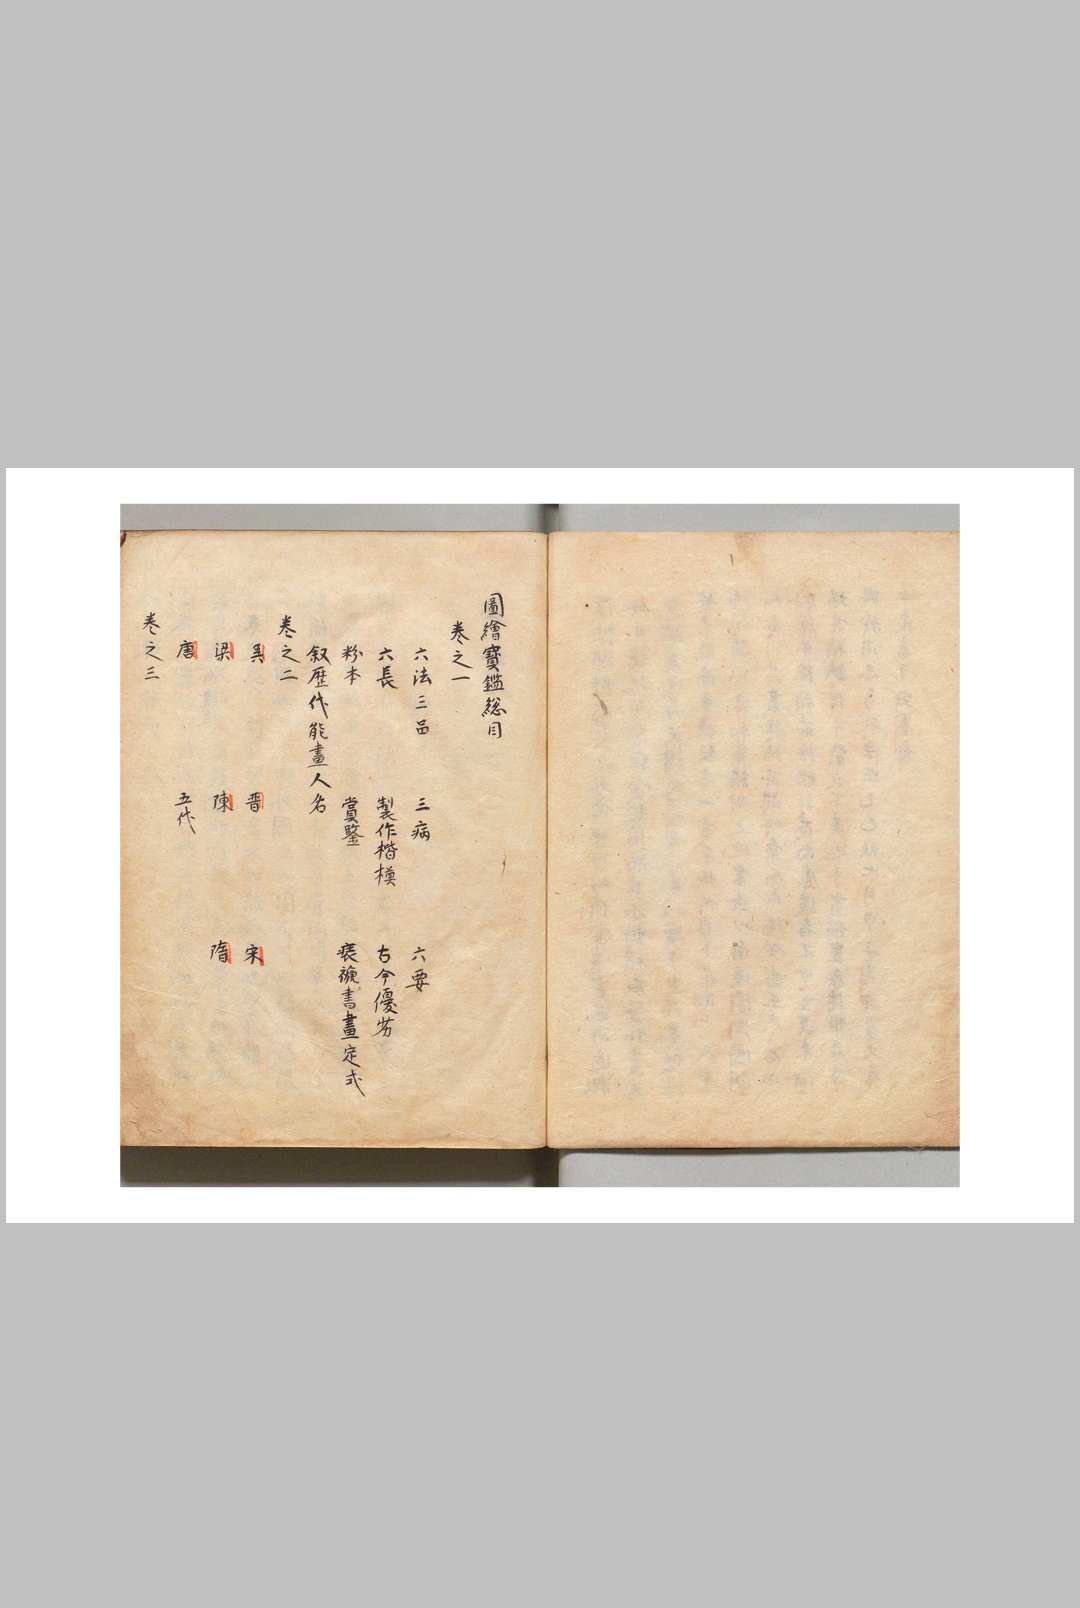 圖繪寶鑑総目
卷之一
六法三品　三病　六要
六長　製作楷模　古今優劣
粉本　賞鑒　裱褫書畫定式
叙歷代能畫人名
卷之二
吴　晋　宋
梁　陳　隋
唐　五代
卷之三